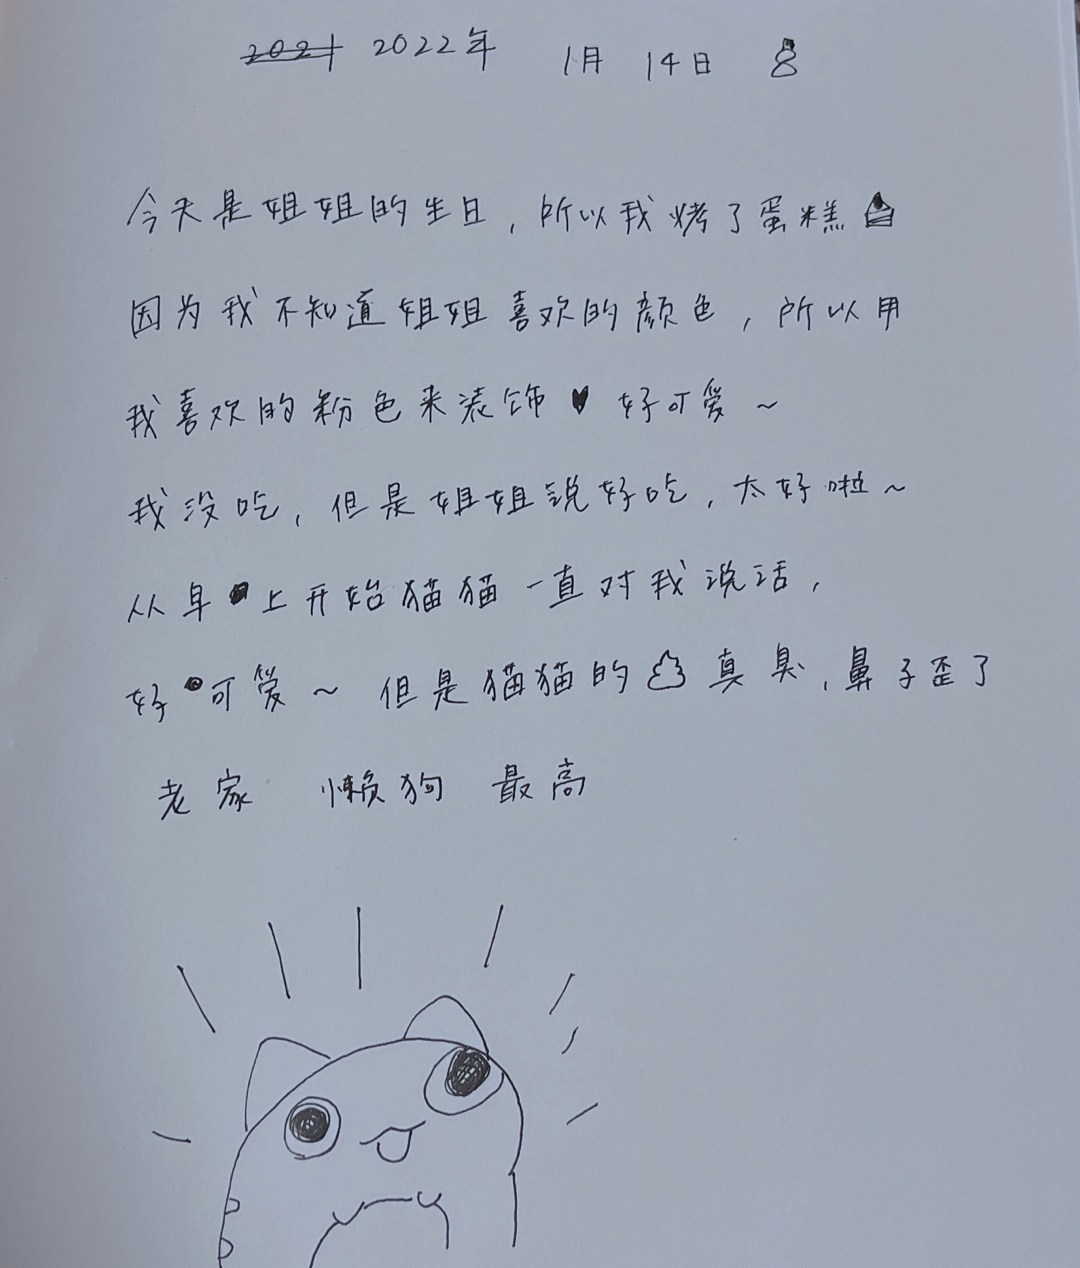 2021 2022年 1月 14日
今天是姐姐的生日，所以我烤了蛋糕
因为我不知道姐姐喜欢的颜色，所以用
我喜欢的粉色来装饰♥ 好可爱～
我没吃，但是姐姐说好吃，太好啦～
从早上开始猫猫一直对我说话，
好可爱～ 但是猫猫的💩真臭，鼻子歪了
老家 懒狗 最高